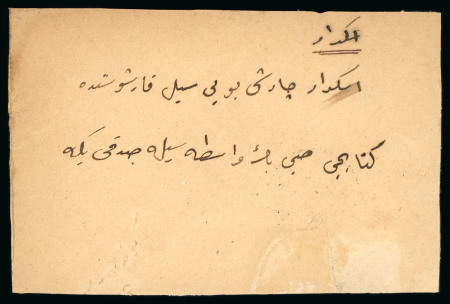 اسكدار
اسكدار چارشو بویی سبیل قارشوسنده
كتابجی صبری بك واسطه سیله صدقی بكه